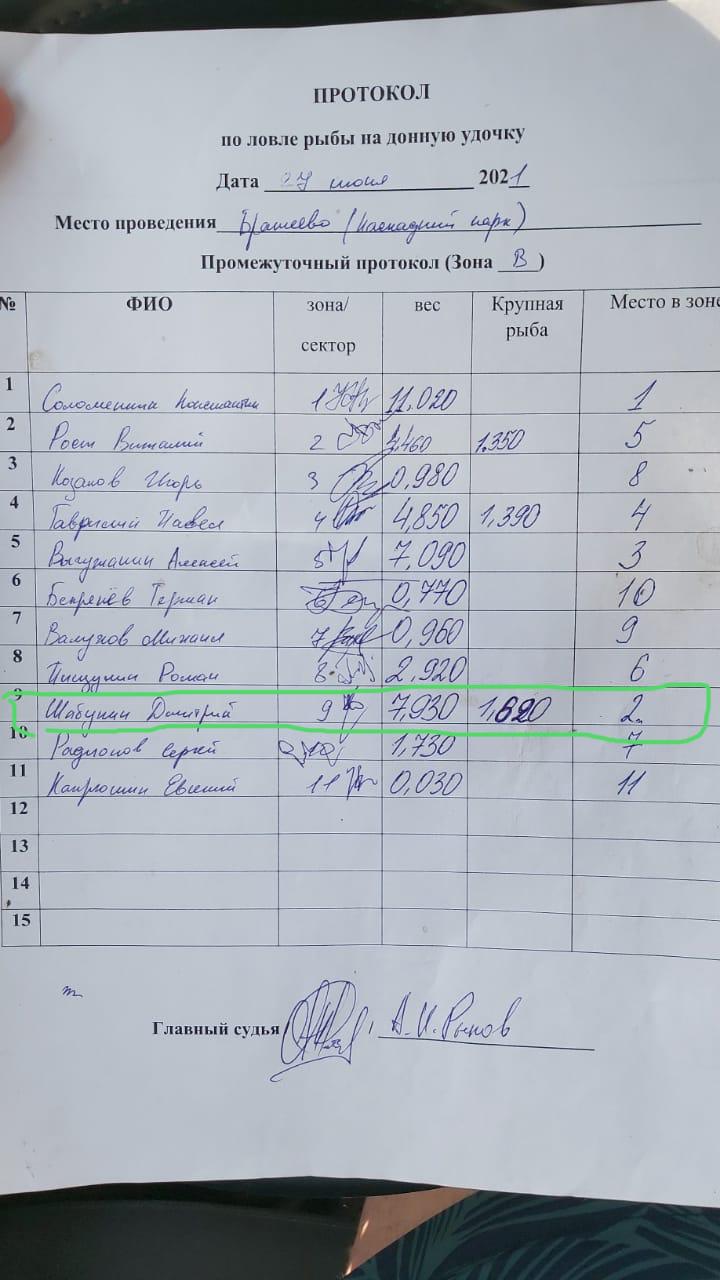 ПРОТОКОЛ
по ловле рыбы на донную удочку
Дата 27 июня 2021
Место проведения Братеево (Каскадный парк)
Промежуточный протокол (Зона В)
№ ФИО зона/ сектор вес Крупная рыба Место в зоне
1 1 11,020 1
2 Рост Виталий 2 4,460 1.350 5
3 Козаков Игорь 3 0,980 8
4 4 4,850 1,390 4
5 Выгузанин Алексей 5 7,090 3
6 6 0,770 10
7 Валухов Михаил 7 0,960 9
8 Пищулин Роман 8 2,920 6
9 Шабунин Дмитрий 9 7,930 1,620 2
10 Радионов Сергей 1,730 7
11 Евгений 11 0,030 11
12
13
14
15
Главный судья А.И. Рыков